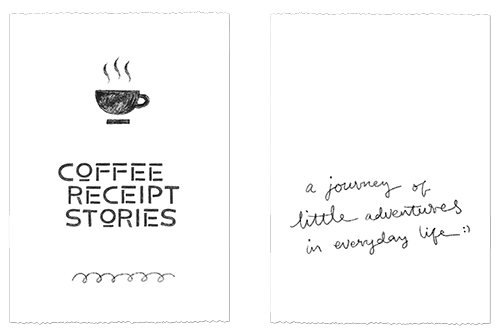 COFFEE
RECEIPT
STORIES
a journey of
little adventures
in everyday life :)